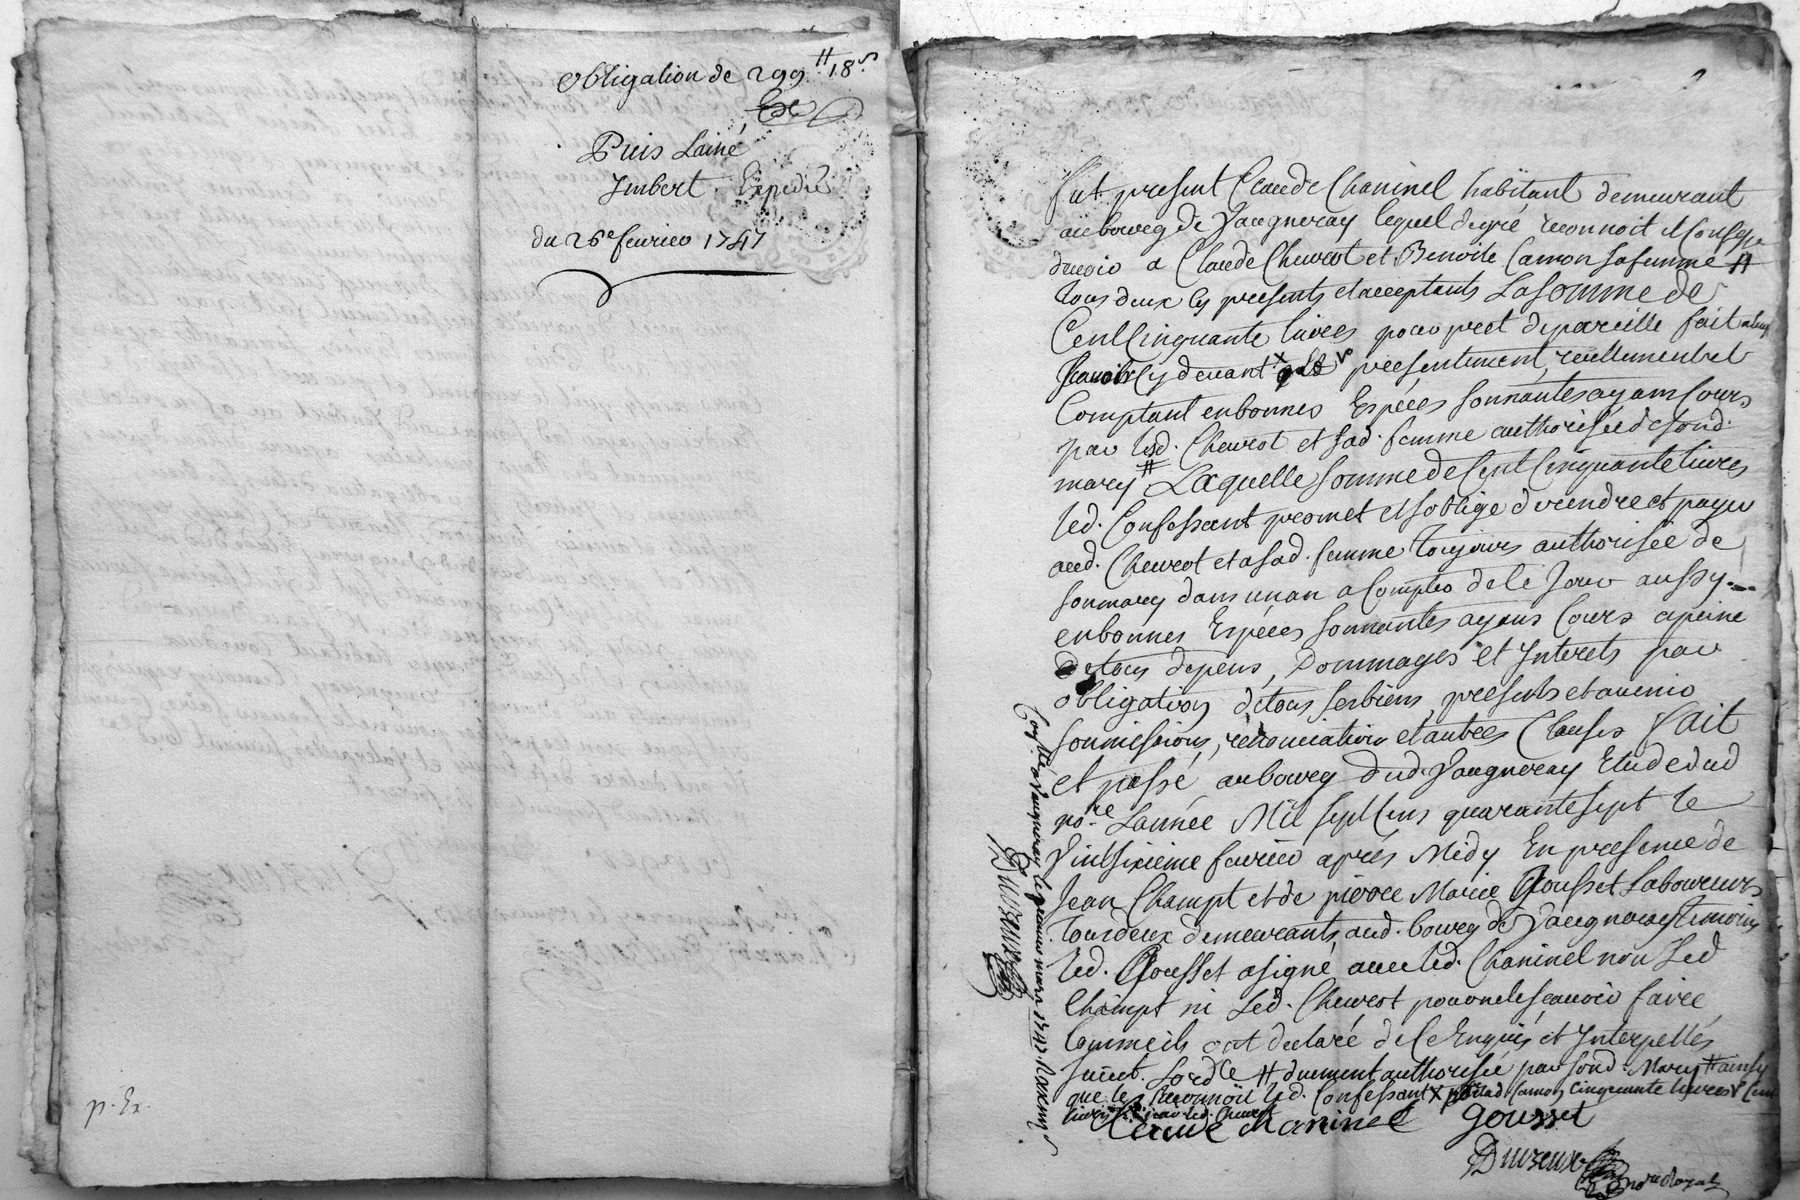 obligation de 299ᵗᵗ 18ˢ
Puis Lainé
Imbert Expedié
du 26ᵉ fevrier 1747
p. Ex.
fut present Claude Chaninel habitant demeurant
au bourg de Vaugneray lequel de gré reconnoit et Confesse
devoir a Claude Chevrot et Benoite Camon sa femme #
tous deux cy presents et acceptants La somme de
Cent Cinquante livres pour pret de pareille fait
Scavoir Cy devant x v presentement, reellement et
Comptant en bonnes Espéces sonnantes ayant Cours
par led. Chevrot et sad. femme authorisée de sond.
mary # Laquelle somme de Cent Cinquante livres
led. Confessant promet et s'oblige de rendre et payer
aud. Chevrot et a sad. femme toujours authorisée de
son mary dans un an a Compter de Ce Jour aussy
en bonnes Espéces sonnantes ayant Cours a peine
de tous depens, Dommages et Interets par
obligation de tous ses biens presents et avenir
soumissions, renonciations et autres Clauses fait
et passé au bourg dud. Vaugneray Etude dud
noʳᵉ Lannée Mil sept Cens quarante sept le
Vint sixieme fevrier apres Midy En presence de
Jean Champt et de pierre Marie Gousset Laboureurs
tous deux demeurants aud. bourg de Vaugneray temoins
led. Gousset a signé avec led. Chaninel non Led
Champt ni Led. Chevrot pour ne le scavoir faire
Comme ils ont declaré de Ce Enquis et Interpellés
suivt. Lordᶜᵉ # duement authorisée par sond. Mary # ainsy
que le reconnoit led. Confessant x par lad Camon Cinquante livres v Cent
livres par led. Chevrot
Claude chaninel gousset
Duvzeux noʳᵉ Royal
Conˡˡᵉ a Vaugneray le premier mars 1747 Reçu
Duvzeux